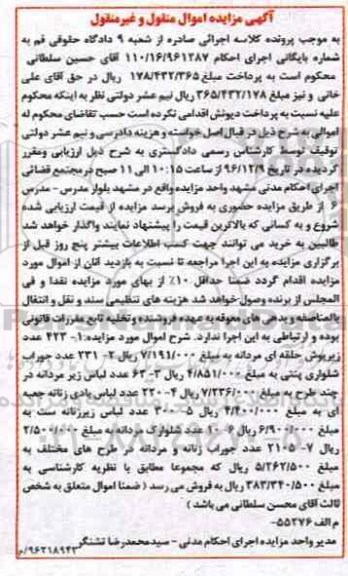 آگهی مزایده اموال منقول و غیرمنقول
به موجب پرونده کلاسه اجرائی صادره از شعبه ۹ دادگاه حقوقی قم به
شماره بایگانی اجرای احکام ۱۱۰/۱۶/۹۶۱۲۸۷ آقای حسین سلطانی
محکوم است به پرداخت مبلغ ۱۷۸/۴۳۲/۳۶۵ ریال در حق آقای علی
خانی و نیز مبلغ ۳۶۵/۴۳۲/۱۷۸ ریال نیم عشر دولتی نظر به اینکه محکوم
علیه نسبت به پرداخت دیونش اقدامی نکرده است حسب تقاضای محکوم له
اموالی به شرح ذیل در قبال اصل خواسته و هزینه دادرسی و نیم عشر دولتی
توقیف توسط کارشناس رسمی دادگستری به شرح ذیل ارزیابی ومقرر
گردیده در تاریخ ۹۶/۱۲/۹ از ساعت ۱۰:۱۵ الی ۱۱ صبح درمجتمع قضائی
اجرای احکام مدنی مشهد واحد مزایده واقع در مشهد بلوار مدرس - مدرس
۶ از طریق مزایده حضوری به فروش برسد مزایده از قیمت ارزیابی شده
شروع و به کسانی که بالاترین قیمت را پیشنهاد نمایند واگذار خواهد شد
طالبین به خرید می توانند جهت کسب اطلاعات بیشتر پنج روز قبل از
برگزاری مزایده به این اجرا مراجعه تا نسبت به بازدید آنان از اموال مورد
مزایده اقدام گردد ضمنا حداقل ۱۰٪ از بهای مورد مزایده نقدا و فی
المجلس از برنده وصول خواهد شد هزینه های تنظیمی سند و نقل و انتقال
بالمناصفه و بدهی های معوقه به عهده فروشنده وتخلیه تابع مقررات قانونی
بوده و ارتباطی به این اجرا ندارد. شرح اموال مورد مزایده:۱- ۴۲۳ عدد
زیرپوش حلقه ای مردانه به مبلغ ۷/۱۹۱/۰۰۰ ریال ۲- ۲۳۱ عدد جوراب
شلواری پنتی به مبلغ ۴/۸۵۱/۰۰۰ ریال ۳- ۶۳ عدد لباس زیر مردانه در
چند طرح به مبلغ ۷/۲۳۶/۰۰۰ ریال ۴- ۲۲۰ عدد لباس بادی زنانه جعبه
ای به مبلغ ۴/۴۰۰/۰۰۰ ریال ۵- ۳۰۰ عدد لباس زیرزنانه ست به
مبلغ ۶/۹۰۰/۰۰۰ ریال ۶- ۱۰ عدد شلوارک مردانه به مبلغ ۲/۵۰۰/۰۰۰
ریال ۷- ۲۱۰۵ عدد جوراب زنانه و مردانه در طرح های مختلف به
مبلغ ۵/۲۶۲/۵۰۰ ریال که مجموعا مطابق با نظریه کارشناسی به
مبلغ ۳۸۳/۳۴۰/۵۰۰ ریال به فروش می رسد ( ضمنا اموال متعلق به شخص
ثالث آقای محسن سلطانی می باشد )
م الف ۵۵۲۷۶-
مدیر واحد مزایده اجرای احکام مدنی - سیدمحمدرضا تشنگر
۹۶۲۱۸۹۴۳/م